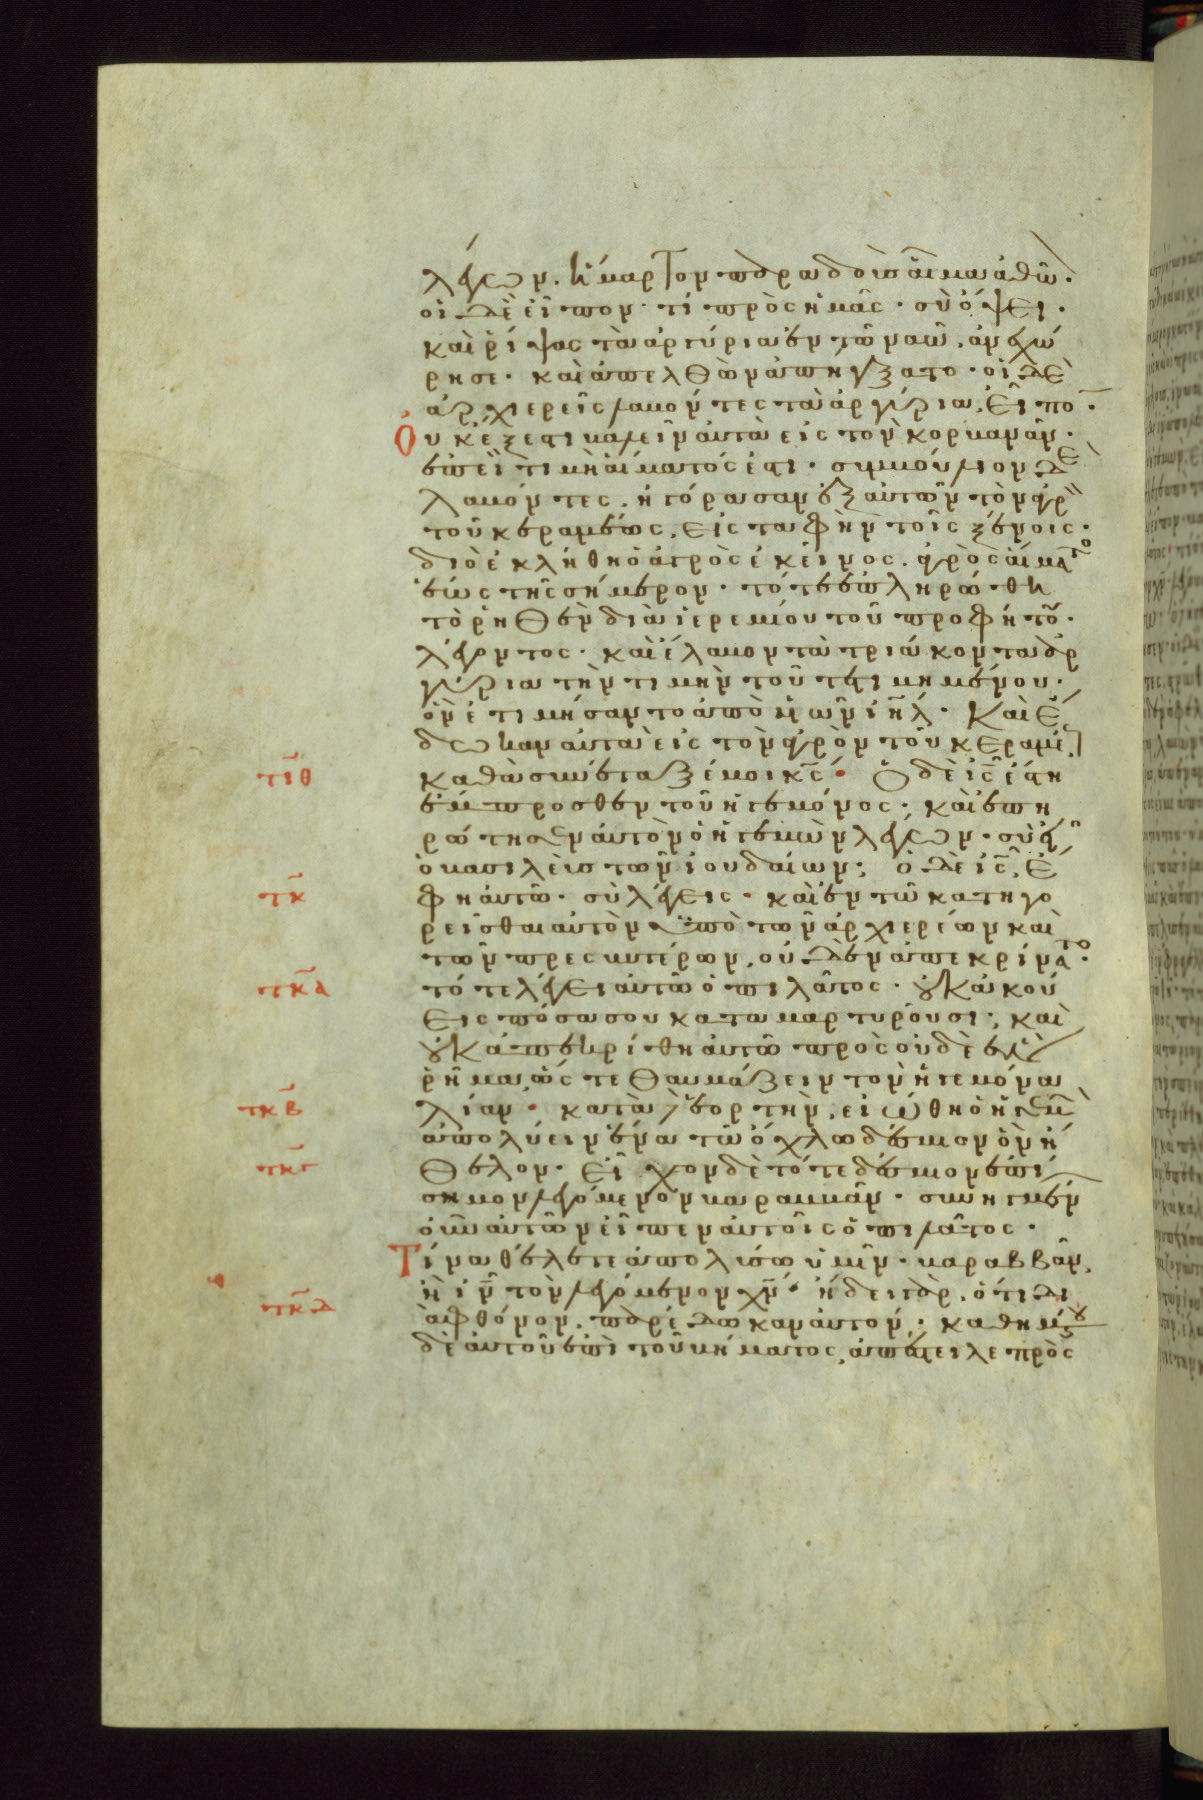 λέγων· ἥμαρτον παραδοὺς αἷμα ἀθῶ·
οἱ δὲ εἶπον· τί πρὸς ἡμᾶς· σὺ ὄψει·
καὶ ῥίψας τὰ ἀργύρια ἐν τῶ ναῶ, ἀνεχώ
ρησε· καὶ ἀπελθὼν ἀπήγξατο· οἱ δὲ
ἀρχιερεῖς λαβόντες τὰ ἀργύρια, εἶπο·
Οὐκ ἔξεστι βαλεῖν αὐτὰ εἰς τὸν κορβανᾶν·
ἐπεὶ τιμὴ αἵματός ἐστι· συμβούλιον δὲ
λαβόντες, ἠγόρασαν ἐξ αὐτῶν τὸν ἀγρ
τοῦ κεραμέως, εἰς ταφὴν τοῖς ξένοις·
διὸ ἐκλήθη ὁ ἀγρὸς ἐκεῖνος, ἀγρὸς αἵματο
ἕως τῆς σήμερον· τότε ἐπληρώθη
τὸ ῥηθὲν διὰ ἱερεμίου τοῦ προφήτου·
λέγοντος· καὶ ἔλαβον τὰ τριάκοντα ἀρ
γύρια τὴν τιμὴν τοῦ τετιμημένου·
ὃν ἐτιμήσαντο ἀπὸ υἱῶν ἰηλ· Καὶ ἔ
δωκαν αὐτὰ εἰς τὸν ἀγρὸν τοῦ κεραμέ
τιθ καθὰ συνέταξέ μοι κς· Ὁ δὲ ις ἔστη
ἔμπροσθεν τοῦ ἡγεμόνος· καὶ ἐπη
ρώτησεν αὐτὸν ὁ ἡγεμὼν λέγων· σὺ εἶ
ὁ βασιλεὺς τῶν ἰουδαίων; ὁ δὲ ις, ἔ
τκ φη αὐτῶ· σὺ λέγεις· καὶ ἐν τῶ κατηγο
ρεῖσθαι αὐτὸν ὑπὸ τῶν ἀρχιερέων καὶ
τῶν πρεσβυτέρων, οὐδὲν ἀπεκρίνατο·
τκα τότε λέγει αὐτῶ ὁ πιλᾶτος· οὐκ ἀκού
εις πόσα σου καταμαρτυροῦσι; καὶ
οὐκ ἀπεκρίθη αὐτῶ πρὸς οὐδὲ ἓν
ῥῆμα, ὥστε θαυμάζειν τὸν ἡγεμόνα
τκβ λίαν· κατὰ δὲ ἑορτὴν, εἰώθη ὁ ἡγεμ
ἀπολύειν ἕνα τῶ ὄχλω δέσμιον ὃν ἤ
τκγ θελον· Εἶχον δὲ τότε δέσμιον ἐπί
σημον λεγόμενον βαραββᾶν· συνηγμέν
οὖν αὐτῶν εἶπεν αὐτοῖς ὁ πιλᾶτος·
Τίνα θέλετε ἀπολύσω ὑμῖν· βαραββᾶν,
ἢ ιν τὸν λεγόμενον χν· ἤδει γὰρ, ὅτι δι
τκδ ὰ φθόνον, παρέδωκαν αὐτόν· καθημέ
δὲ αὐτοῦ ἐπὶ τοῦ βήματος, ἀπέστειλε πρὸς